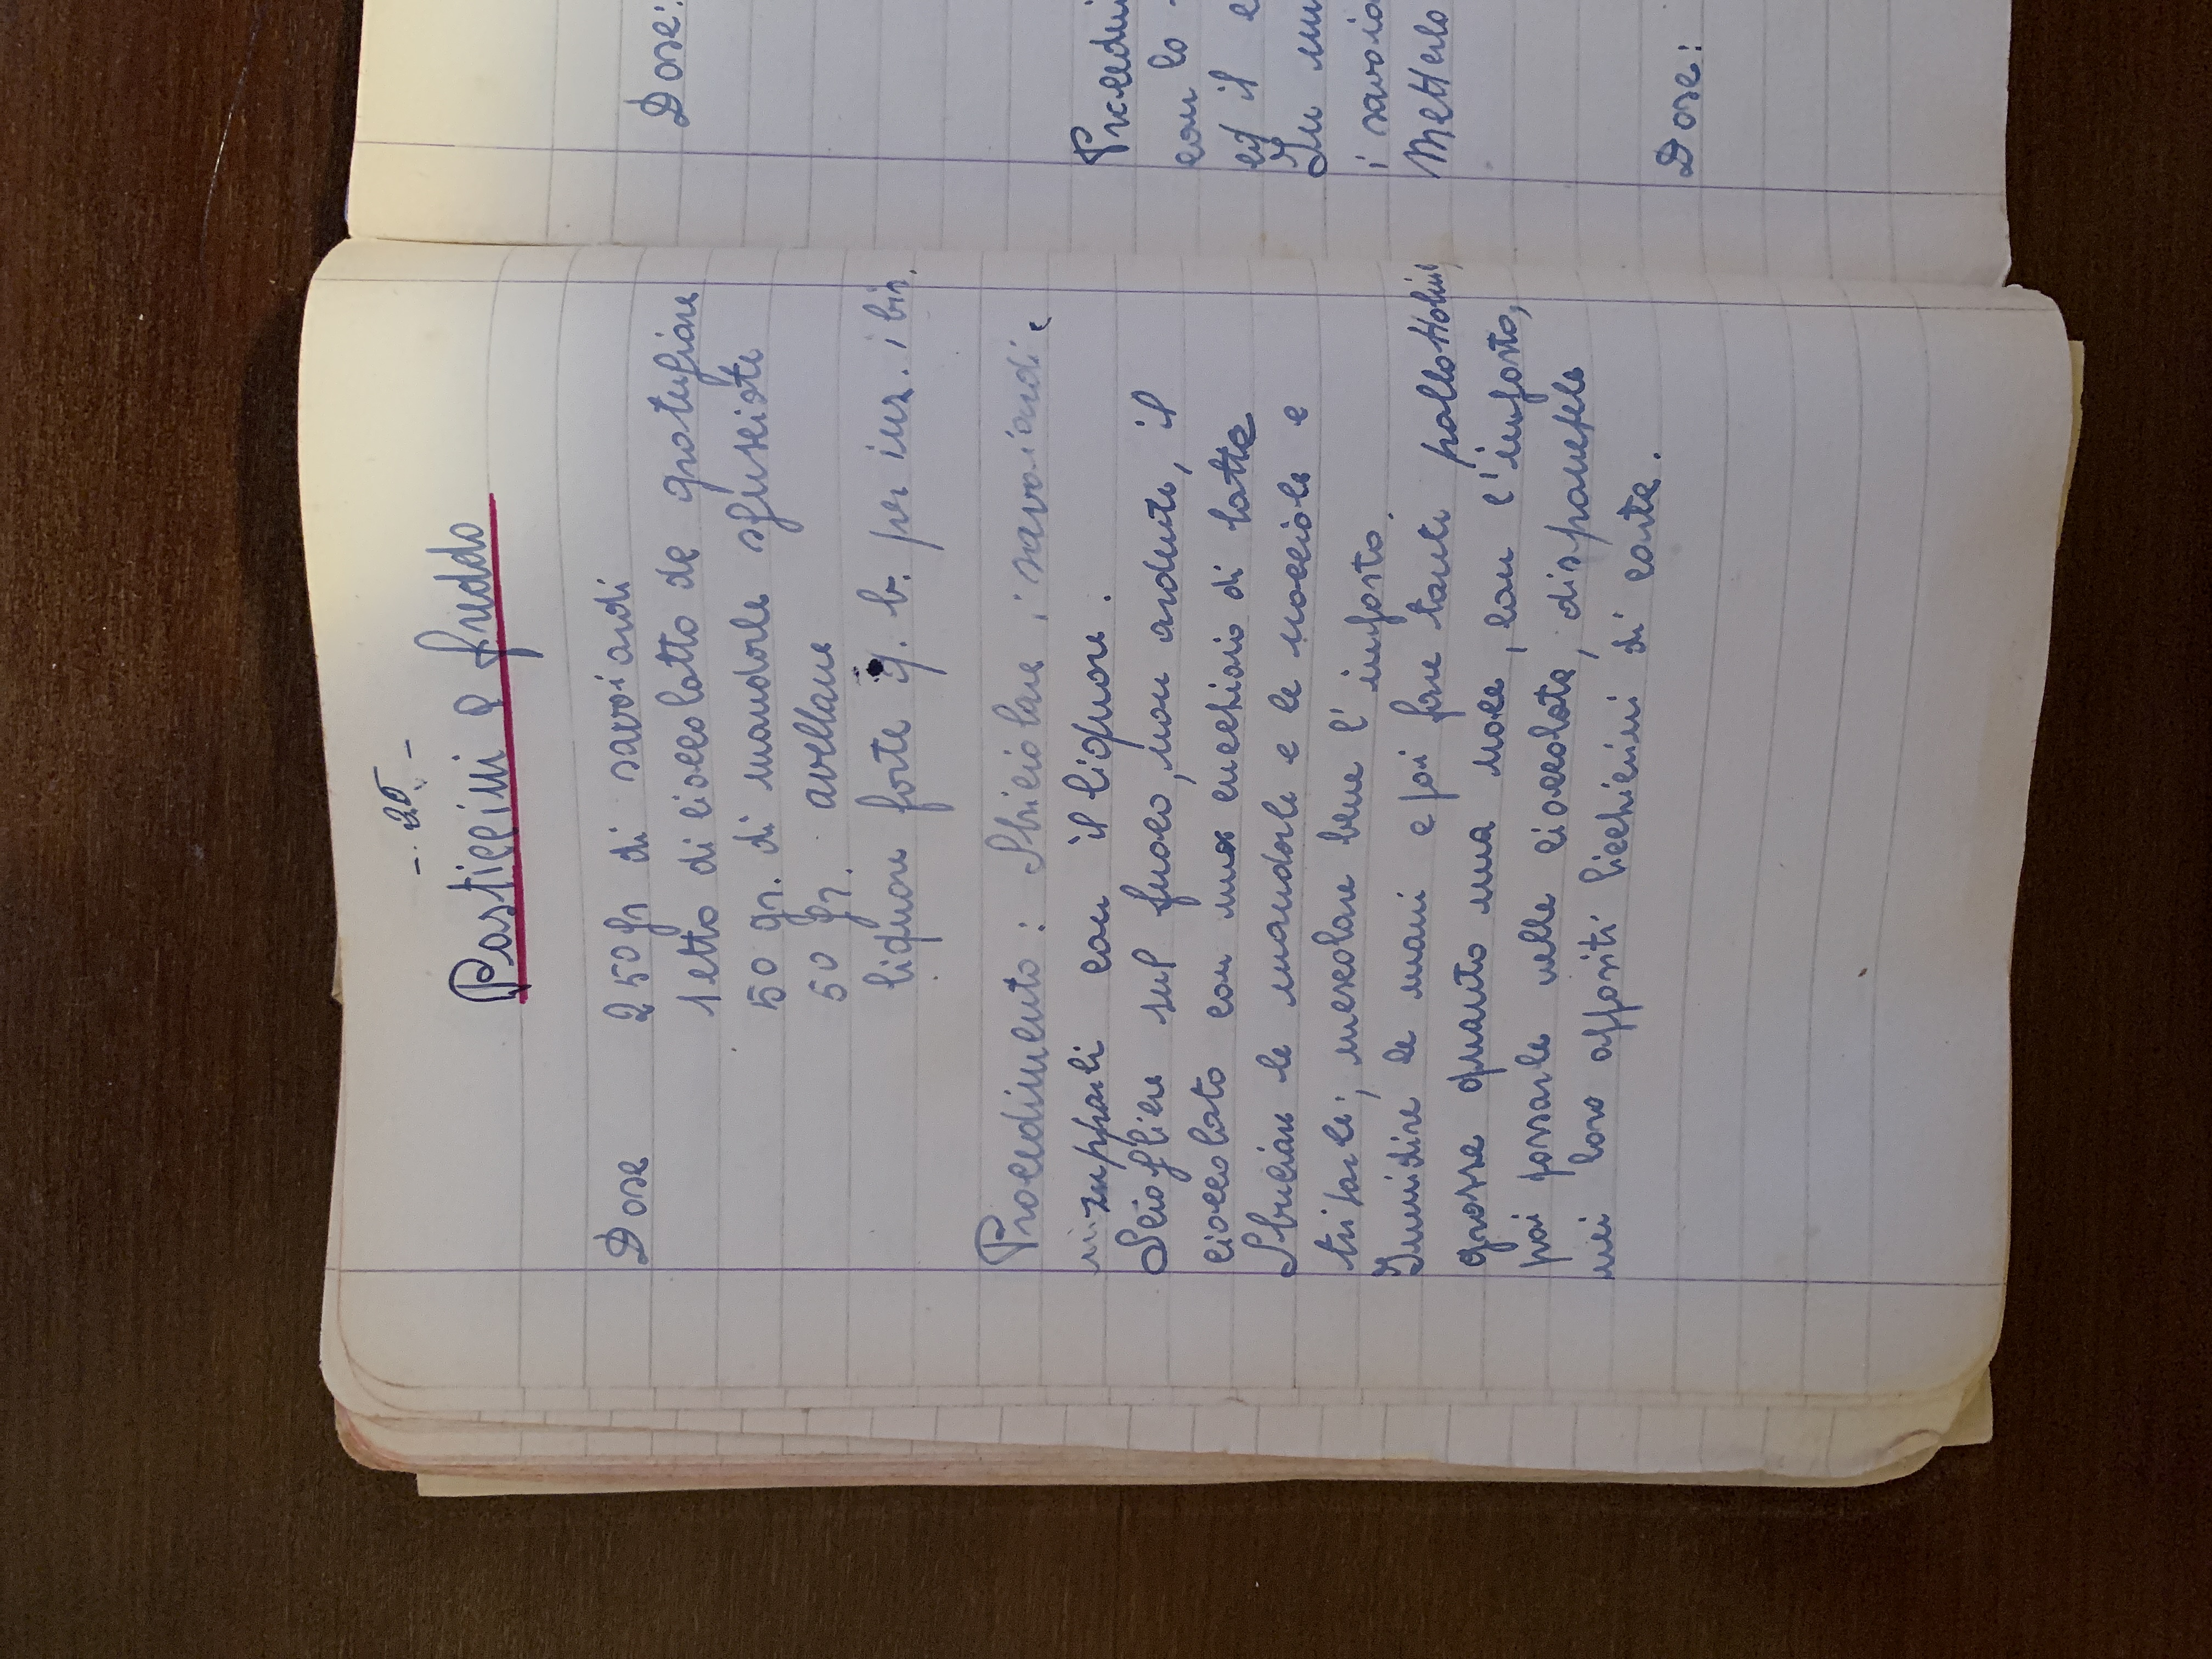 - 25. -
Pasticcini a freddo
Dose 250 gr di savoiardi
1 etto di cioccolatto da gratugiare
50 gr. di mandorle sgusciate
50 gr. avellane
liquore forte q. b. per inz. i bis.
Procedimento: Sbriciolare i savoiardi e
inzupparli con il liquore.
Sciogliere sul fuoco, non ardente, il
cioccolato con un cucchiaio di latte
Sbuciare le mandorle e le nocciole e
tritarle; mescolare bene l'imposto.
Inumidire le mani e poi fare tante pallottoline,
grosse quanto una noce, con l'imposto,
poi passarle nella cioccolata, disponetele
nei loro appositi bicchierini di carta.
Dose:
con lo
ed il
In
i
Metterlo
Dose: